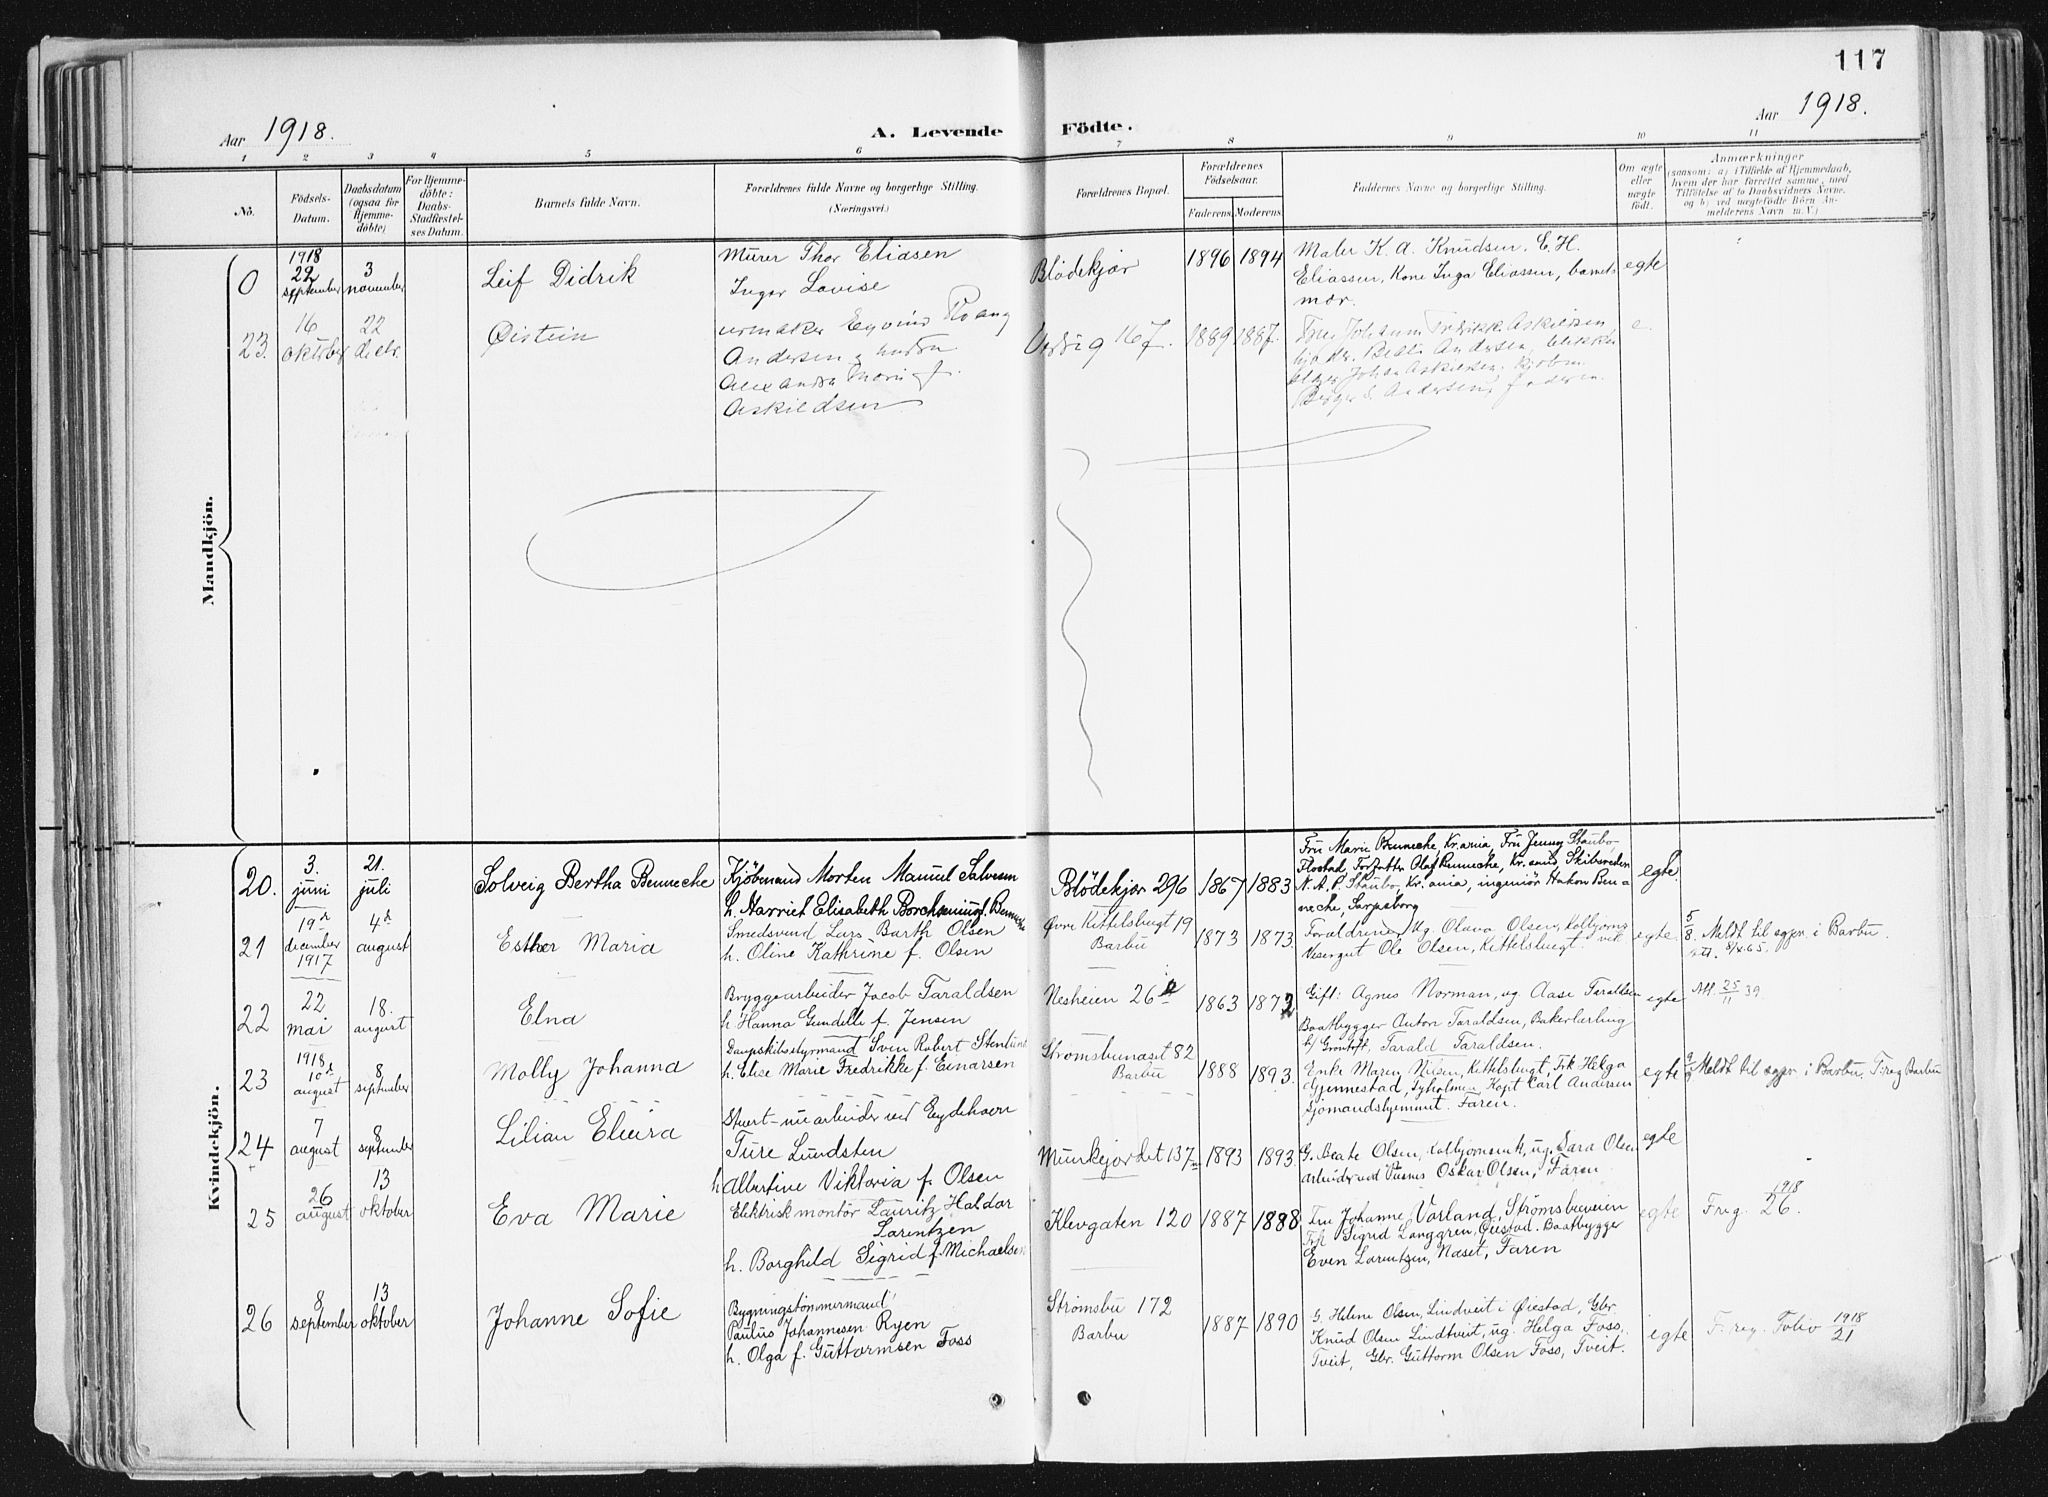 117
Aar 1918.
A. Levende Födte.
Aar 1918.
1 2 3 4 5 6 7 8 9 10 11
No.
Födsels-
Datum.
Daabsdatum
(ogsaa for
Hjemme-
döbte)
For Hjemme-
döbte:
Daabs-
Stadfæstel-
ses Datum.
Barnets fulde Navn.
Forældrenes fulde Navne og borgerlige Stilling.
(Næringsvei.)
Forældrenes Bopæl.
Forældrenes
Födselsaar.
Faderens Moderens
Faddernes Navne og borgerlige Stilling.
Om ægte
eller
uægte
født.
Anmærkninger
(saasom: a) i Tilfælde af Hjemmedaab,
hvem der har forrettet samme, med
Tilföielse af to Daabsvidners Navne,
og b) ved uægtefödte Börn An-
melderens Navn m. V.)
Mandkjön.
0
1918
22
september
3
november
Leif Didrik
Murer Thor Eliasen
Inger Lovise
Blødekjær
1896 1894
Maler K. A. Knudsen. E. H.
Eliassen, Kone Inga Eliassen, barnets
mor.
egte
23.
16
oktober
22
decbr.
Øistein
urmaker Eyvind
Andersen
Alexandra
Askildsen
167.
1889 1887
Fru Johanne Askildsen,
Andersen,
Johan Askildsen,
Andersen, faderen.
e.
Kvindekjön.
20.
3.
juni
21.
juli
Solveig Bertha Bennecke
Kjöbmand Morten Manuel Salvesen
h. Harriet Elisabeth Borchsenius f. Bennecke
Blödekjær 296
1867 1883
Fru Marie Bennecke, Kr.ania, Fru Jenny Staubo,
Flostad, Forfatter Olaf Bennecke, Kr.sund, Skibsreder
N. A. P. Staubo, Kr.ania, ingeniør Hakon Ben-
necke, Sarpsborg
egte.
21
19d
december
1917
4d
august
Esther Maria
Smedsvend Lars Barth Olsen
h. Oline Kathrine f. Olsen
Øvre Kittelsbugt 19
Barbu
1873 1873.
Forældrene, Ug. Olava Olsen, Kolbjørns-
vik
Visergut Ole Olsen, Kittelsbugt.
egte.
5/8. Meldt til sogpr. i Barbu.
att. 8/4.65.
22
22
mai
18.
august
Elna
Bryggearbeider Jacob Taraldsen
h. Hanna Gundelle f. Jensen
Nesheien 26
1863 1872
Gift: Agnes Norman, ug. Aase Taraldsen
Baatbygger Anton Taraldsen, Bakerlærling
Tarald Taraldsen.
egte
Att. 25/11 39
23
1918
10d
august
8
september
Molly Johanna
Dampskibsstyrmand Sven Robert Stenlund
h. Elise Marie Fredrikke f. Einarsen
Strømsbunæset 82
Barbu
1888 1893.
Enke Maren Nilsen, Kittelsbugt, Frk Helga
Gjennestad, Tyholmen, Kapt Carl Andersen
Sjømandshjemmet. Faren.
egte
9/9 Meldt til sogpr i Barbu. F. reg Barbu
24
7
august
8
september
Lilian Elvira
arbeider ved Eydehavn
Ture Lundsten
h Albertine Viktoria f. Olsen
Munkejordet 137
1893 1893.
G. Beate Olsen, Kolbjørnsvik, ug. Sara Olsen
arbeider ved Vesnes Oskar Olsen, Faren.
egte
25
26
august
13
oktober
Eva Marie
Elektrisk montör Lauritz Haldor
Larentzen
h. Borghild Sigrid f. Michaelsen
Klevgaten 120
1887 1888
Fru Johanne Vorland, Strømsbuveien
Frk Sigrid Langgren, Øiestad. Baatbygger
Even Larentzen, Næset, Faren
egte
F. reg. 1918/26.
26
8
september
13
oktober
Johanne Sofie
Bygningstömmermand
Paulus Johannesen Ryen
h. Olga f. Guttormsen Foss
Strømsbu 172
Barbu
1887 1890
G. Helene Olsen, Lindtveit i Øiestad, Gbr.
Knud Olsen Lindtveit, ug. Helga Foss,
Tveit, Gbr. Guttorm Olsen Foss, Tveit.
egte
F. reg. Folio 1918/21